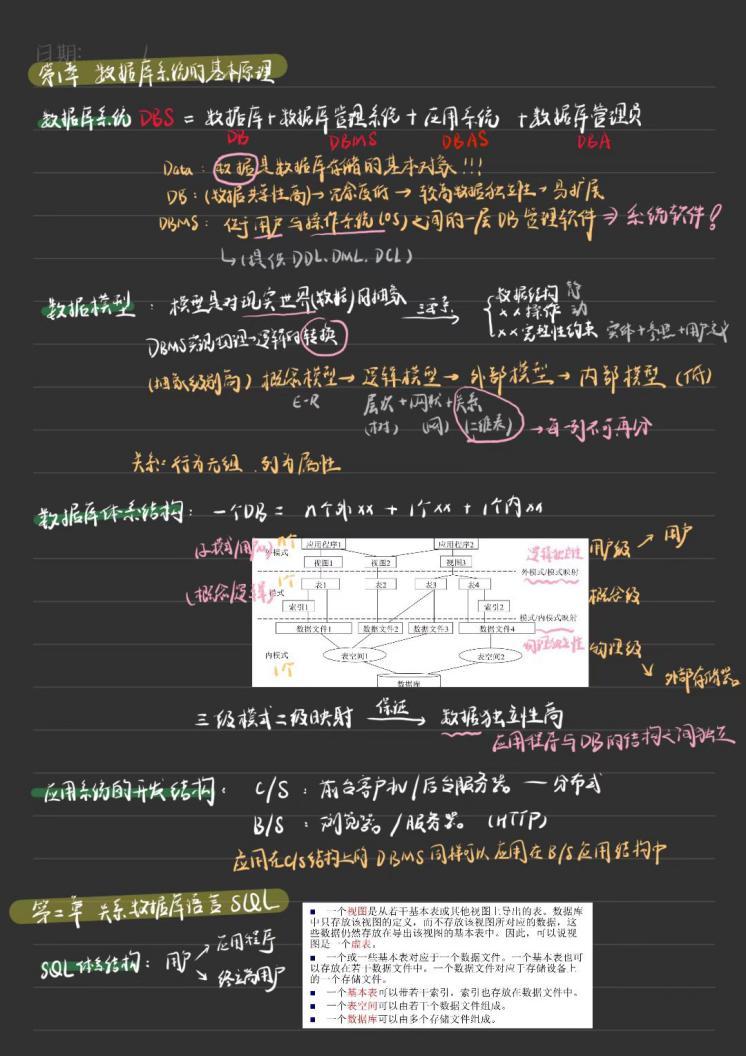 日期:
第1章 数据库系统的基本原理
数据库系统 DBS = 数据库 + 数据库管理系统 + 应用系统 + 数据库管理员
DB DBMS DBAS DBA
Data：数据是数据库存储的基本对象!!!
DB：(数据共享性高)→冗余度低→较高数据独立性→易扩展
DBMS：位于用户与操作系统(OS)之间的一层DB管理软件⇒系统软件?
↳(提供DDL、DML、DCL)
数据模型：模型是对现实世界(数据)的抽象
数据结构 静
××操作 动
××完整性约束 实体+参照+用户定义
DBMS实现物理→逻辑的转换
(抽象级别高)概念模型→逻辑模型→外部模型→内部模型(低)
E-R 层次+网状+关系
(树) (网) (二维表)→每一列不可再分
关系：行为元组，列为属性
数据库体系结构：一个DB = n个外×× + 1个×× + 1个内××
外模式 n个 应用程序1 应用程序2 逻辑独立性 用户级→用户
视图1 视图2 视图3
外模式/模式映射
(概念/逻辑)模式 1个 表1 表2 表3 表4 概念级
索引1 索引2
模式/内模式映射
数据文件1 数据文件2 数据文件3 数据文件4 物理独立性 物理级
内模式 表空间1 表空间2
1个 外部存储器
数据库
三级模式二级映射 保证→ 数据独立性高
应用程序与DB的结构之间独立
应用系统的开发结构：C/S：前台客户机/后台服务器 — 分布式
B/S：浏览器/服务器 (HTTP)
应用在C/S结构上的DBMS同样可以应用在B/S应用结构中
第二章 关系数据库语言SQL
SQL体系结构：用户
应用程序
终端用户
■ 一个视图是从若干基本表或其他视图上导出的表。数据库
中只存放该视图的定义，而不存放该视图所对应的数据，这
些数据仍然存放在导出该视图的基本表中。因此，可以说视
图是一个虚表。
■ 一个或一些基本表对应于一个数据文件。一个基本表也可
以存放在若干数据文件中。一个数据文件对应于存储设备上
的一个存储文件。
■ 一个基本表可以带若干索引，索引也存放在数据文件中。
■ 一个表空间可以由若干个数据文件组成。
■ 一个数据库可以由多个存储文件组成。